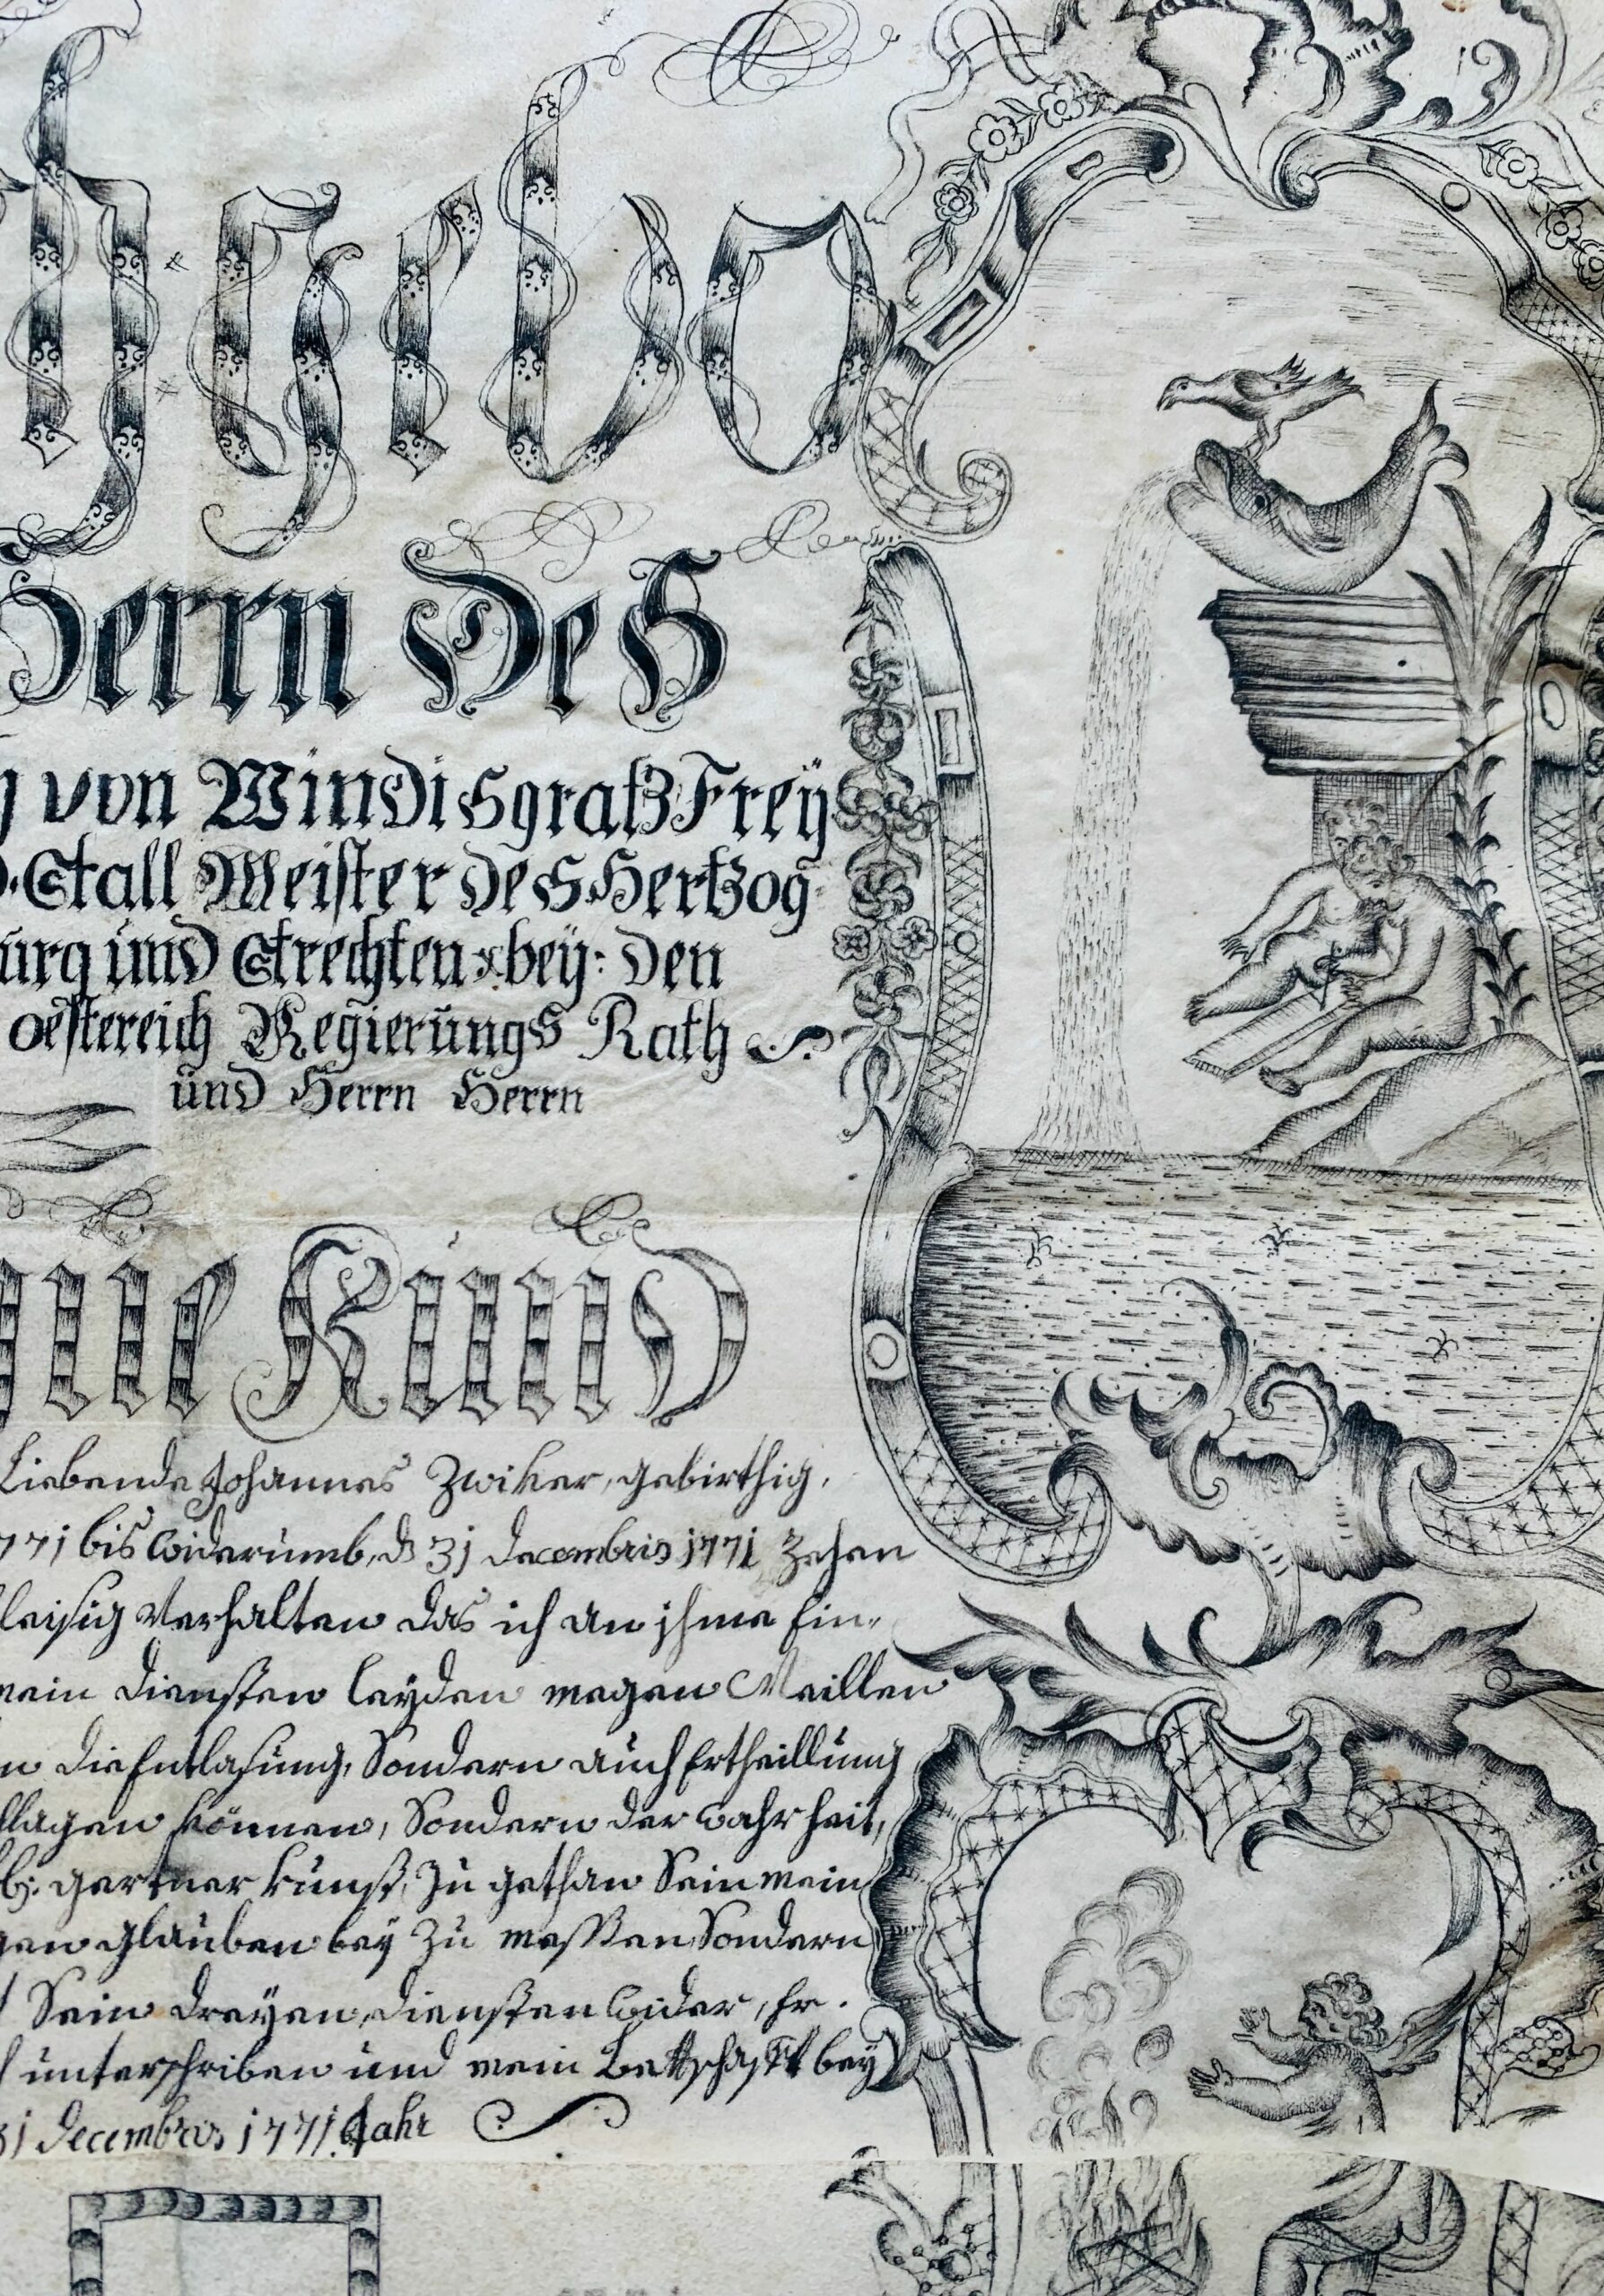 hgebo
Herrn Des
von Windisgratz Frey
Stall Meister des Hertzog
urg und Strechten bey: den
oestereich Regierungs Rath
und Herrn Herrn
Kund
Liebende Johannes Zwiker, gebirthig,
771 bis widerumb, d 31 decembris 1771 Zehen
leisig verhalten das ich an ihme Ein-
mein diensten leyden megen Weillen
die Entlasung, Sondern auch Ertheillung
können, Sondern der wahrheit,
gartner kunst, Zu gethan Sein mein
glauben bey Zu messen Sondern
Sein dreyen diensten wider, Er.
unterschriben und mein Bettschafft bey
31 decembris 1771 Jahr